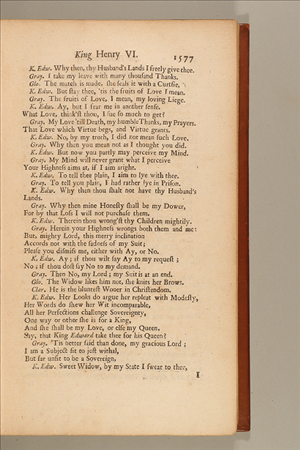 King Henry VI. 1577
K. Edw. Why then, thy Husband's Lands I freely give thee.
Gray. I take my leave with many thousand Thanks.
Glo. The match is made, she seals it with a Curtsie.
K. Edw. But stay thee, 'tis the fruits of Love I mean.
Gray. The fruits of Love, I mean, my loving Liege.
K. Edw. Ay, but I fear me in another sense.
What Love, think'st thou, I sue so much to get?
Gray. My Love 'till Death, my humble Thanks, my Prayers.
That Love which Virtue begs, and Virtue grants.
K. Edw. No, by my troth, I did not mean such Love.
Gray. Why then you mean not as I thought you did.
K. Edw. But now you partly may perceive my Mind.
Gray. My Mind will never grant what I perceive
Your Highness aims at, if I aim aright.
K. Edw. To tell thee plain, I aim to lye with thee.
Gray. To tell you plain, I had rather lye in Prison.
K. Edw. Why then thou shalt not have thy Husband's
Lands.
Gray. Why then mine Honesty shall be my Dower,
For by that Loss I will not purchase them.
K. Edw. Therein thou wrong'st thy Children mightily.
Gray. Herein your Highness wrongs both them and me:
But, mighty Lord, this merry inclination
Accords not with the sadness of my Suit;
Please you dismiss me, either with Ay, or No.
K. Edw. Ay; if thou wilt say Ay to my request;
No; if thou dost say No to my demand.
Gray. Then No, my Lord; my Suit is at an end.
Glo. The Widow likes him not, she knits her Brows.
Clar. He is the bluntest Wooer in Christendom.
K. Edw. Her Looks do argue her replete with Modesty,
Her Words do shew her Wit incomparable,
All her Perfections challenge Sovereignty,
One way or other she is for a King,
And she shall be my Love, or else my Queen.
Say, that King Edward take thee for his Queen?
Gray. 'Tis better said than done, my gracious Lord;
I am a Subject fit to jest withal,
But far unfit to be a Sovereign.
K. Edw. Sweet Widow, by my State I swear to thee,
I